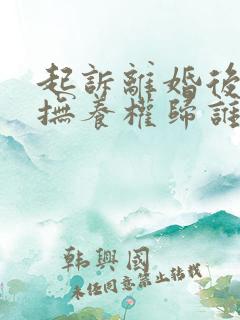 起訴離婚後
撫養權歸誰
韩興國
未经同意禁止转载